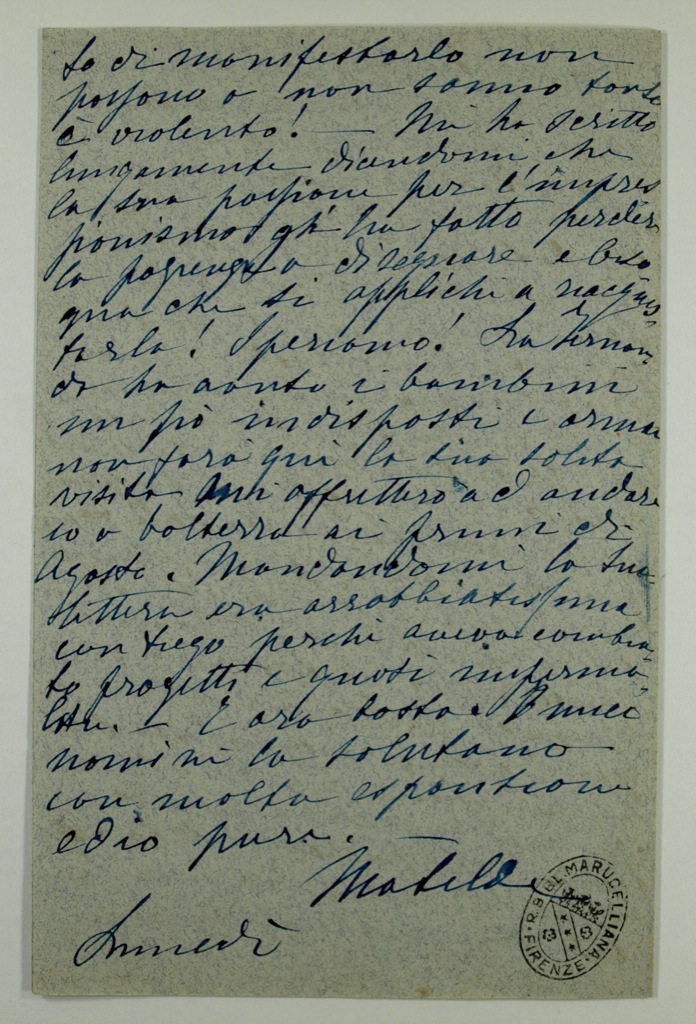 to di manifestarlo non
possono o non sanno tanto
è violento! — Mi ha scritto
lungamente dicendomi che
la sua passione per l'impres
sionismo gli ha fatto perder
la pazienza a disegnare e biso
gna che si applichi a riacquis
tarla! Speriamo! La Fernan-
di ha avuto i bambini
un pò indisposti e ormai
non farà qui la sua solita
visita mi affretterò ad andare
io a Volterra ai primi di
Agosto. Mandandomi la tua
lettera era arrabbiatissima
con perchè aveva cambia-
to progetti e quasi
E ora basta. I miei
uomini la salutano
con molta espansione
ed io pure.
Matilde
Lunedì
R. BIBL. MARUCELLIANA
FIRENZE